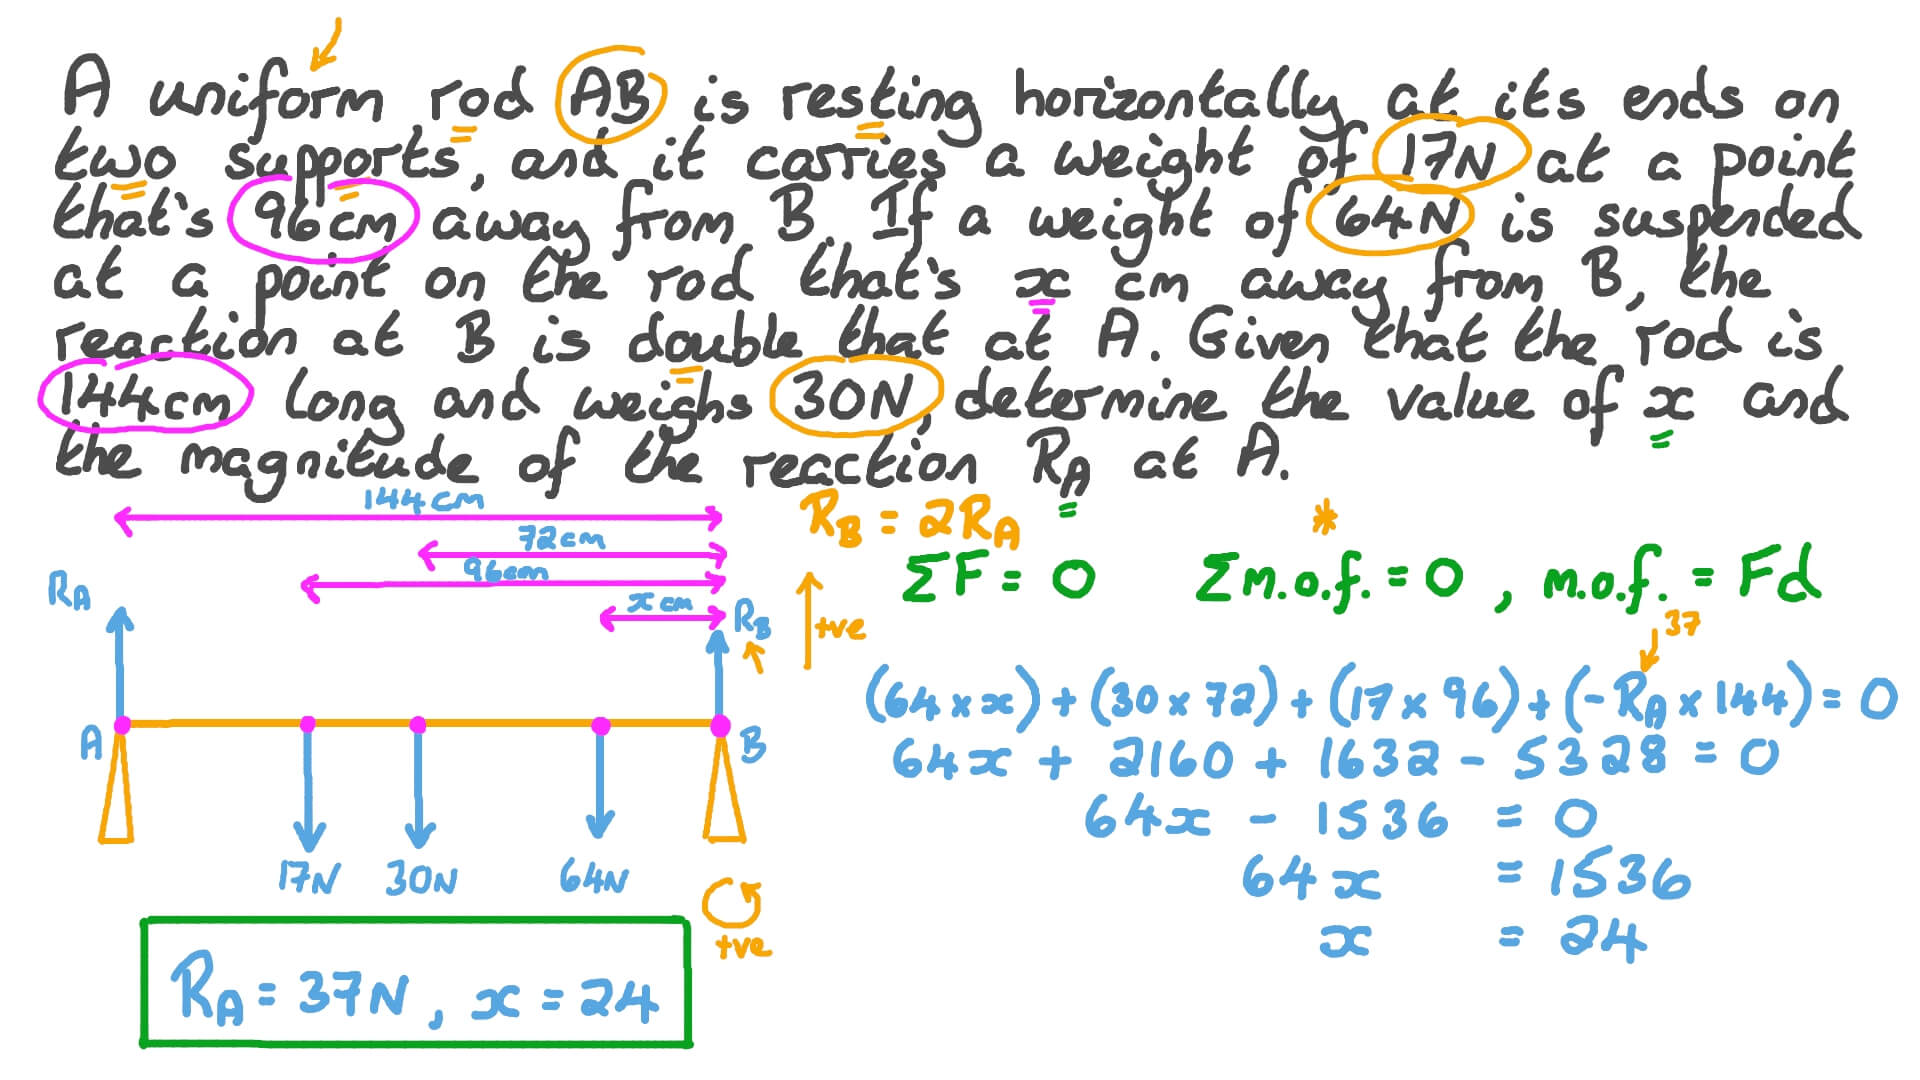 A uniform rod AB is resting horizontally at its ends on
two supports, and it carries a weight of 17N at a point
that's 96cm away from B. If a weight of 64N is suspended
at a point on the rod that's x cm away from B, the
reaction at B is double that at A. Given that the rod is
144cm long and weighs 30N, determine the value of x and
the magnitude of the reaction R_A at A.
144cm
72cm
96cm
x cm
R_A
R_B
+ve
A
B
17N 30N 64N
+ve
R_A = 37N, x = 24
R_B = 2R_A
*
ΣF = 0 Σm.o.f. = 0, m.o.f. = Fd
37
(64 × x) + (30 × 72) + (17 × 96) + (-R_A × 144) = 0
64x + 2160 + 1632 - 5328 = 0
64x - 1536 = 0
64x = 1536
x = 24